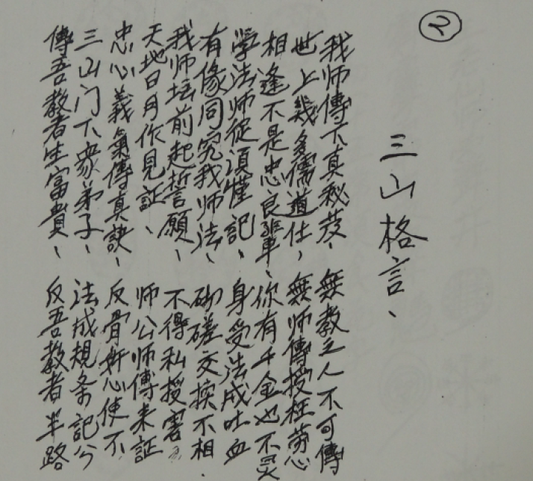 ②
三山格言、
我师傳下真秘芨、無教之人不可傳
世上幾多儒道仕、無师傳授枉劳心
相逢不是忠良輩、你有千金也不灵
学法师從須懂記、身受法成吐血
有像同究我师法、砌磋交换不相
我师坛前起誓願、不得私授害
天地日月作見証、师公师傅来証
忠心義氣傳真訣、反骨奸心使不
三山门下衆弟子、法成規条記分
傳吾教者生富貴、反吾教者半路